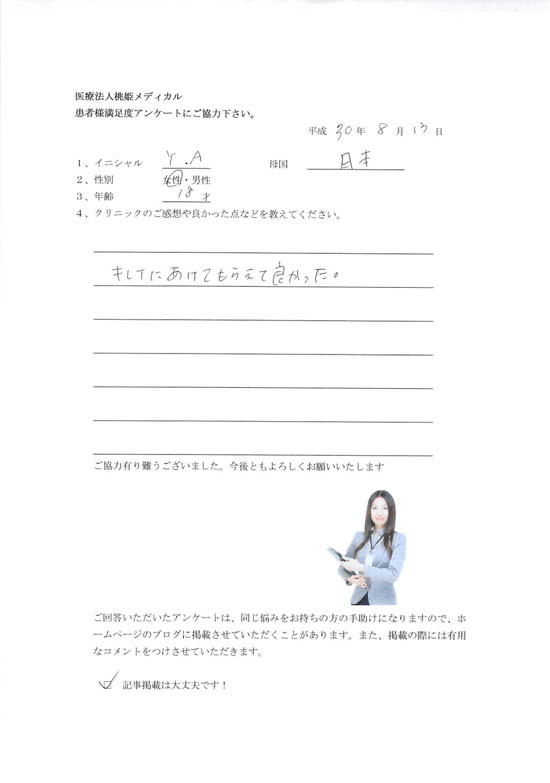 医療法人桃姫メディカル
患者様満足度アンケートにご協力下さい。
平成 30年 8月 13日
1、イニシャル Y.A 母国 日本
2、性別 女性・男性
3、年齢 18才
4、クリニックのご感想や良かった点などを教えてください。
キレイにあけてもらえて良かった。
ご協力有り難うございました。今後ともよろしくお願いいたします
ご回答いただいたアンケートは、同じ悩みをお持ちの方の手助けになりますので、ホ
ームページのブログに掲載させていただくことがあります。また、掲載の際には有用
なコメントをつけさせていただきます。
記事掲載は大丈夫です！